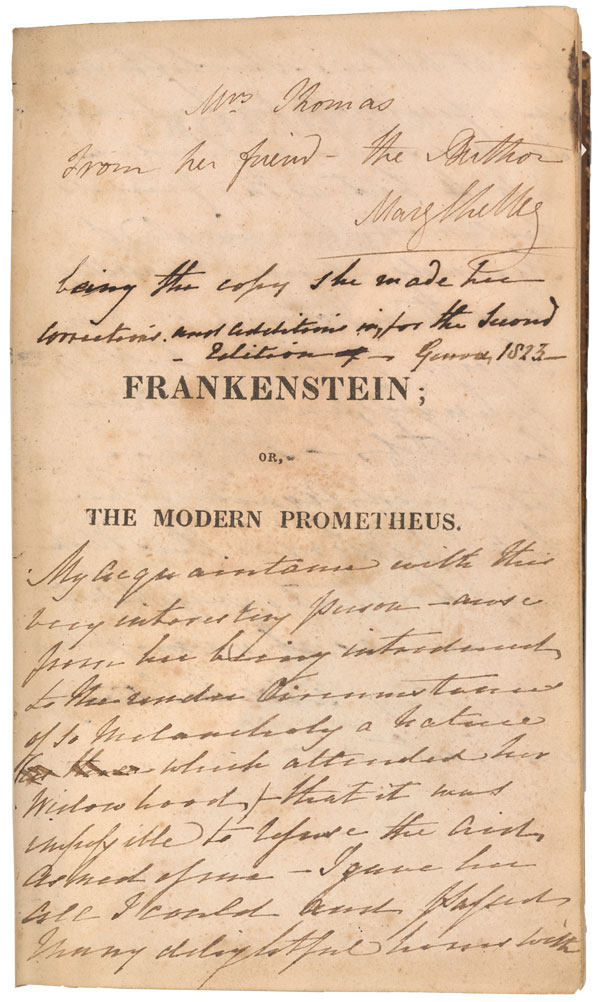 Mrs Thomas
From her friend - the Author
Mary Shelley
being the copy she made her
corrections and additions in, for the Second
- Edition of - Genoa, 1823 -
FRANKENSTEIN;
OR,
THE MODERN PROMETHEUS.
My acquaintance with this
very interesting person - arose
from her being introduced
to me under Circumstances
of so Melancholy a Nature
which attended her
Widowhood, that it was
impossible to refuse the aid
asked of me - I gave her
all I could and passed
many delightful hours with